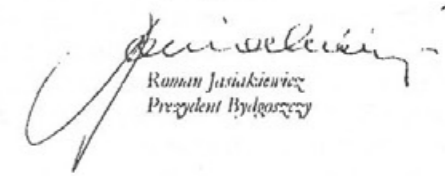 Roman Jasiakiewicz
Prezydent Bydgoszczy